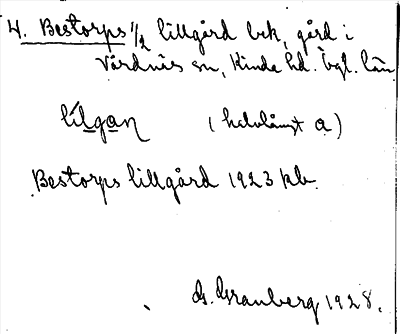 4. Bestorps 1/2 lillgård bek, gård i
Vårdnäs sn, Kinda hd. Ögl. län
lilgan (halvlångt a)
Bestorps lillgård 1923 kb.
G. Granberg 1928.